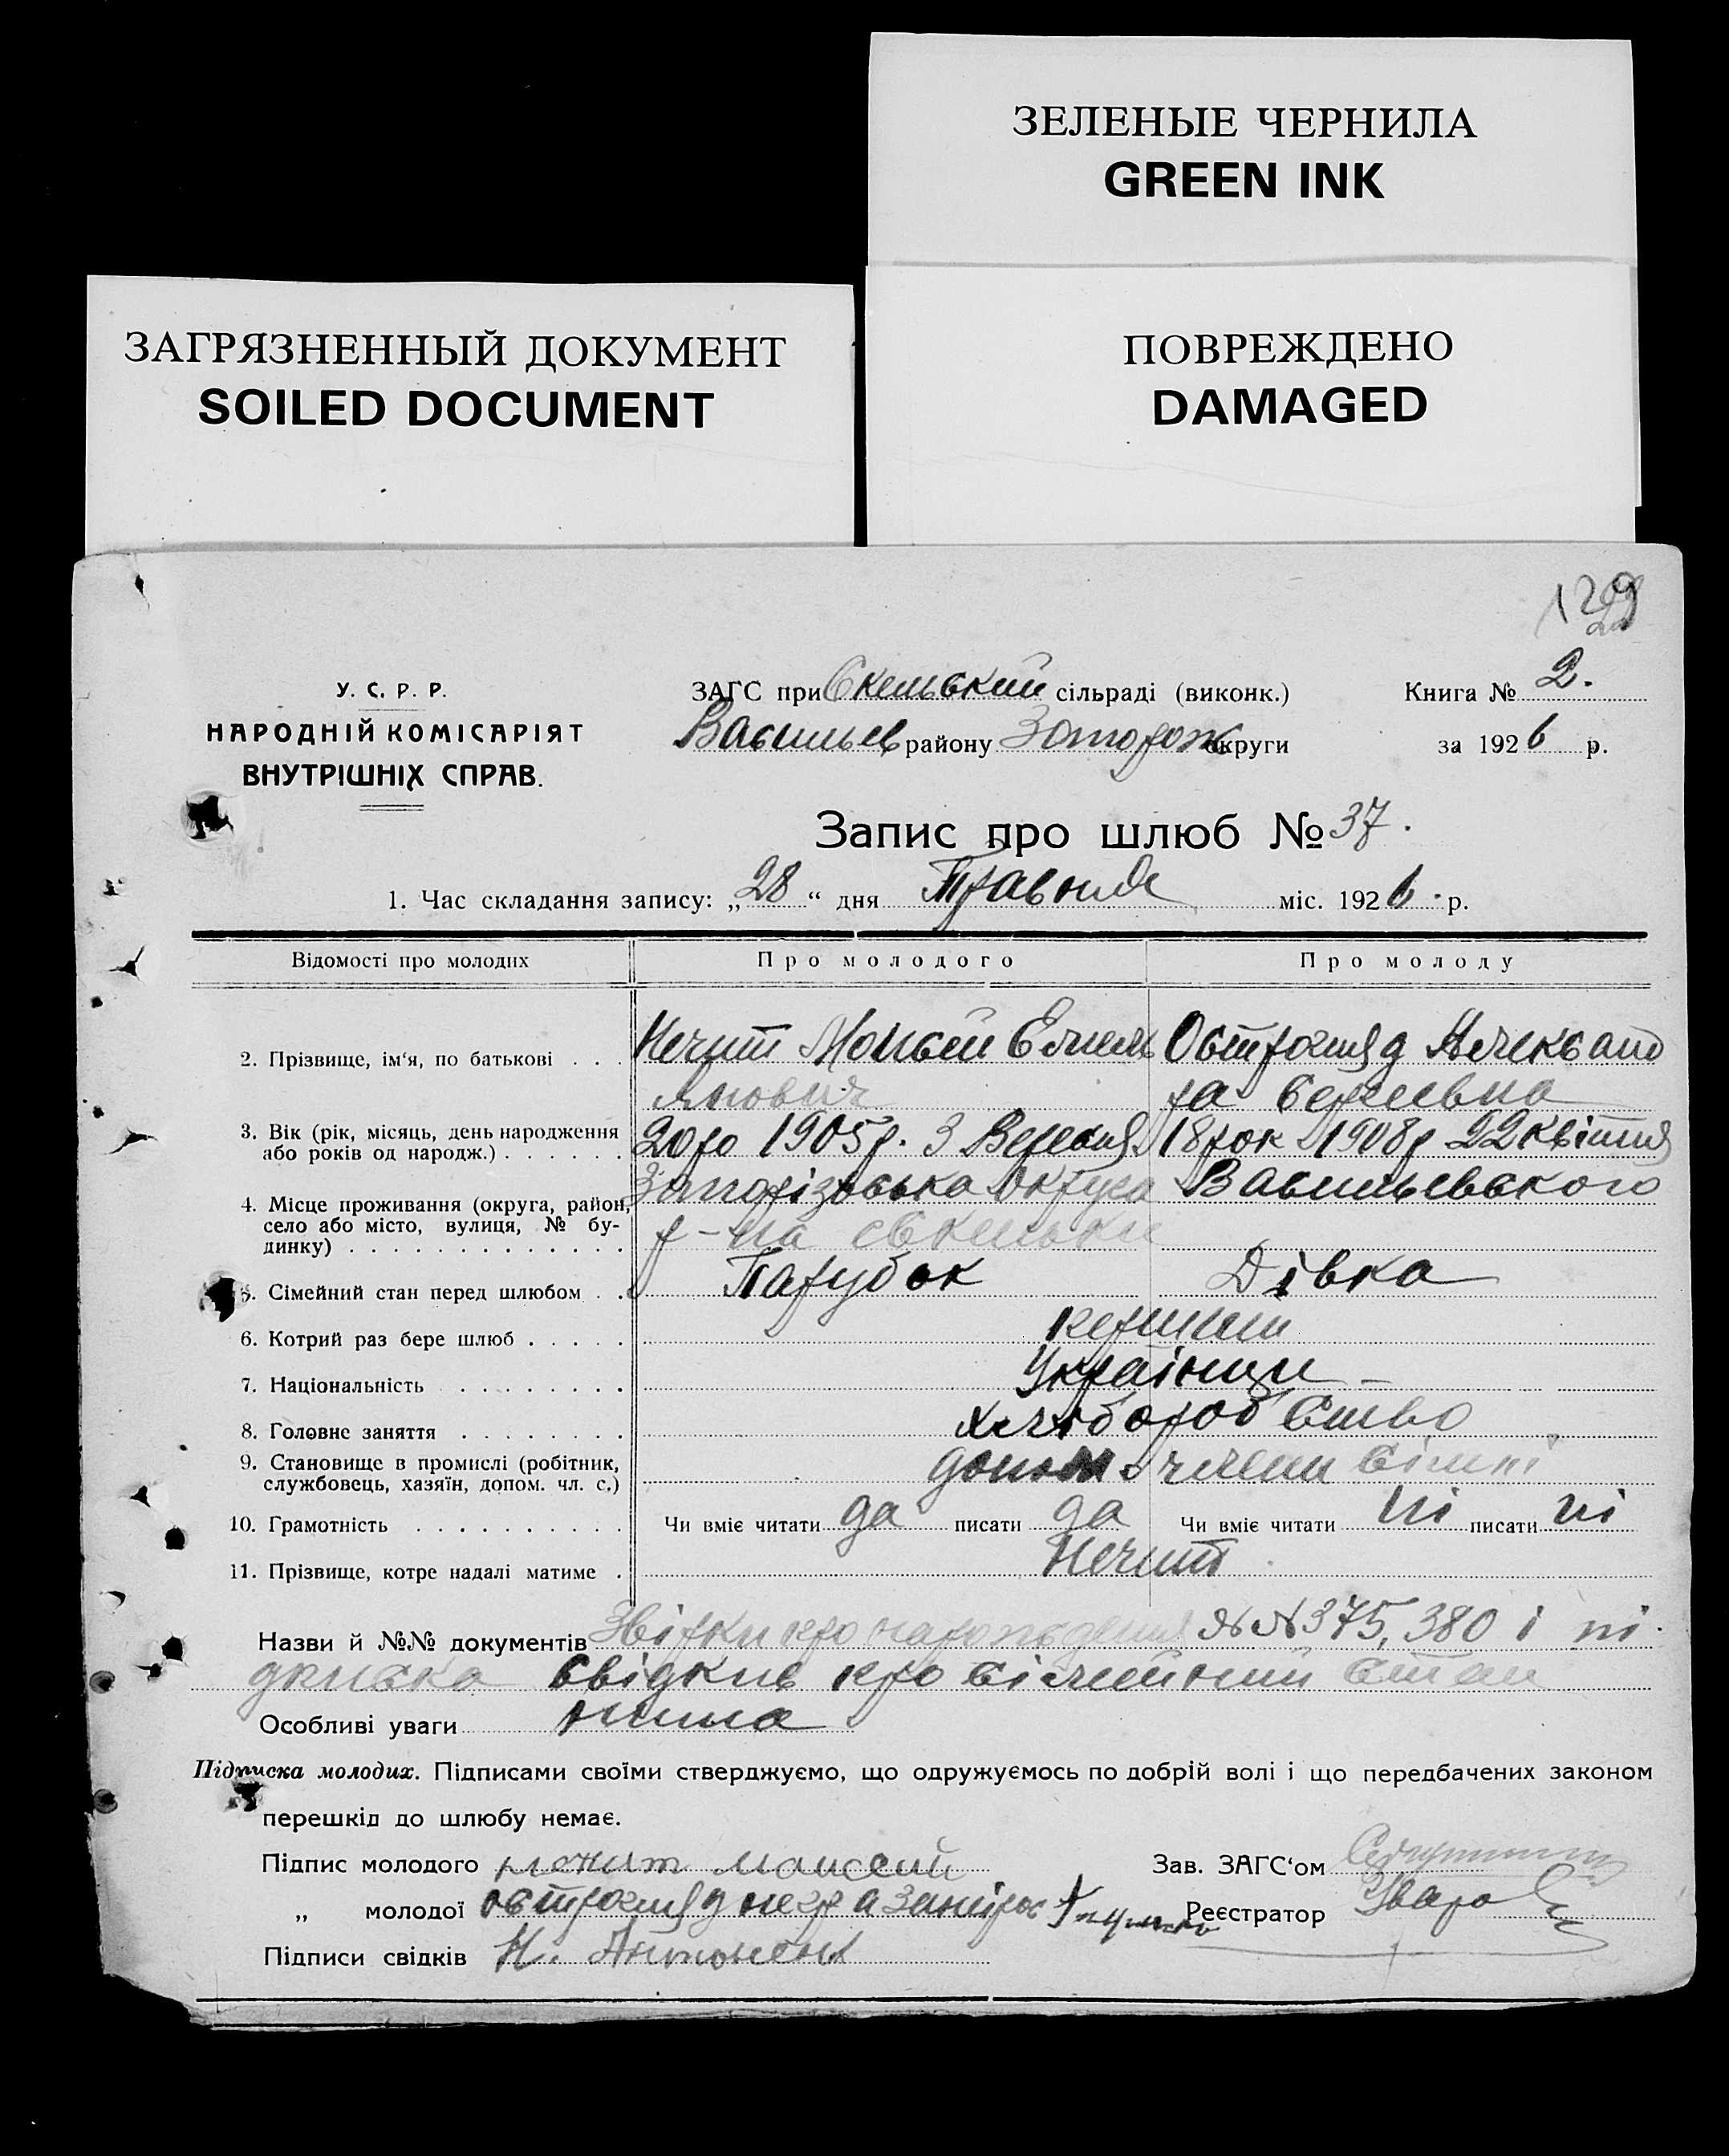 ЗЕЛЕНЫЕ ЧЕРНИЛА
GREEN INK
ЗАГРЯЗНЕННЫЙ ДОКУМЕНТ
SOILED DOCUMENT
ПОВРЕЖДЕНО
DAMAGED
129
У. С. Р. Р.
НАРОДНІЙ КОМІСАРІЯТ
ВНУТРІШНІХ СПРАВ.
ЗАГС при Скельський сільраді (виконк.) Книга № 2.
Васильев району Запорож округи за 1926 р.
Запис про шлюб № 37.
1. Час складання запису: „28“ дня Травня міс. 1926 р.
Відомості про молодих Про молодого Про молоду
2. Прізвище, ім‘я, по батькові . . . Нечит Мойсей Емель Острогляд Александ
янович ра Сергеевна
3. Вік (рік, місяць, день народження 20 ро 1905 р. 3 Вересня 18 рок 1908 р 22 квітня
або років од народж.) . . . . . .
4. Місце проживання (округа, район, Запорізська Округа Васильевського
село або місто, вулиця, № бу- р-на с Скельки
динку) . . . . . . . . . . . . .
5. Сімейний стан перед шлюбом . . Парубок Дівка
6. Котрий раз бере шлюб . . . . . перший
7. Національність . . . . . . . . Українци
8. Головне заняття . . . . . . . . хліборобство
9. Становище в промислі (робітник, допом. члени сімні
службовець, хазяїн, допом. чл. с.)
10. Грамотність . . . . . . . . . . Чи вміє читати да писати да Чи вміє читати ні писати ні
11. Прізвище, котре надалі матиме . Нечит
Назви й №№ документів про народження №№ 375, 380 і пі
дписка свідків про сімейний стан
Особливі уваги нима
Підписка молодих. Підписами своїми стверджуємо, що одружуємось по добрій волі і що передбачених законом
перешкід до шлюбу немає.
Підпис молодого нечит моисей Зав. ЗАГС‘ом
„ молодої острогляд негр а за неї рос Реєстратор Уваро
Підписи свідків Н. Антоненк